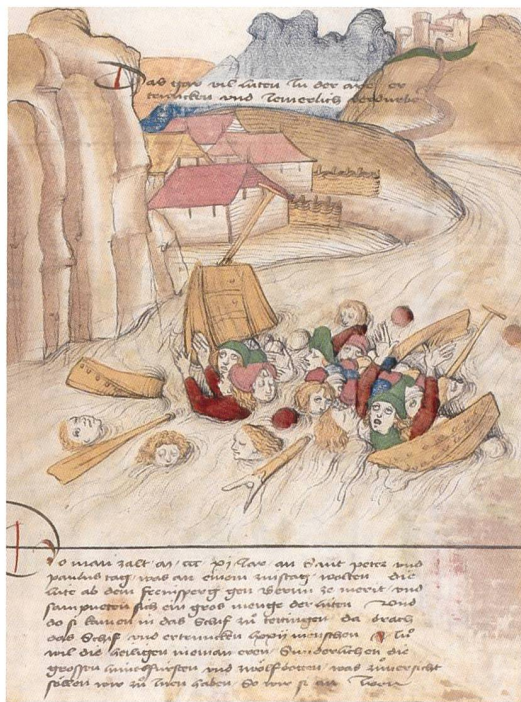 Das gar vil lúten in der are er
truncken und iemerlich verdurbe
Do man zalt m ccc xj Jar an Sant peter und
paulus tag was an einem zinstag wolten die
lúte ab dem frenisperg gen bernn ze merit und
samnoten sich ein gros menge der lúten Und
do si kamen in das Schif zu tettingen da brach
das Schif und ertruncken lxxij mönschen
wil die heiligen nieman eren Sunderlichen die
grossen himelfúrsten und zwölfbotten was zuversicht
söllen wir zu inen haben So wir si an